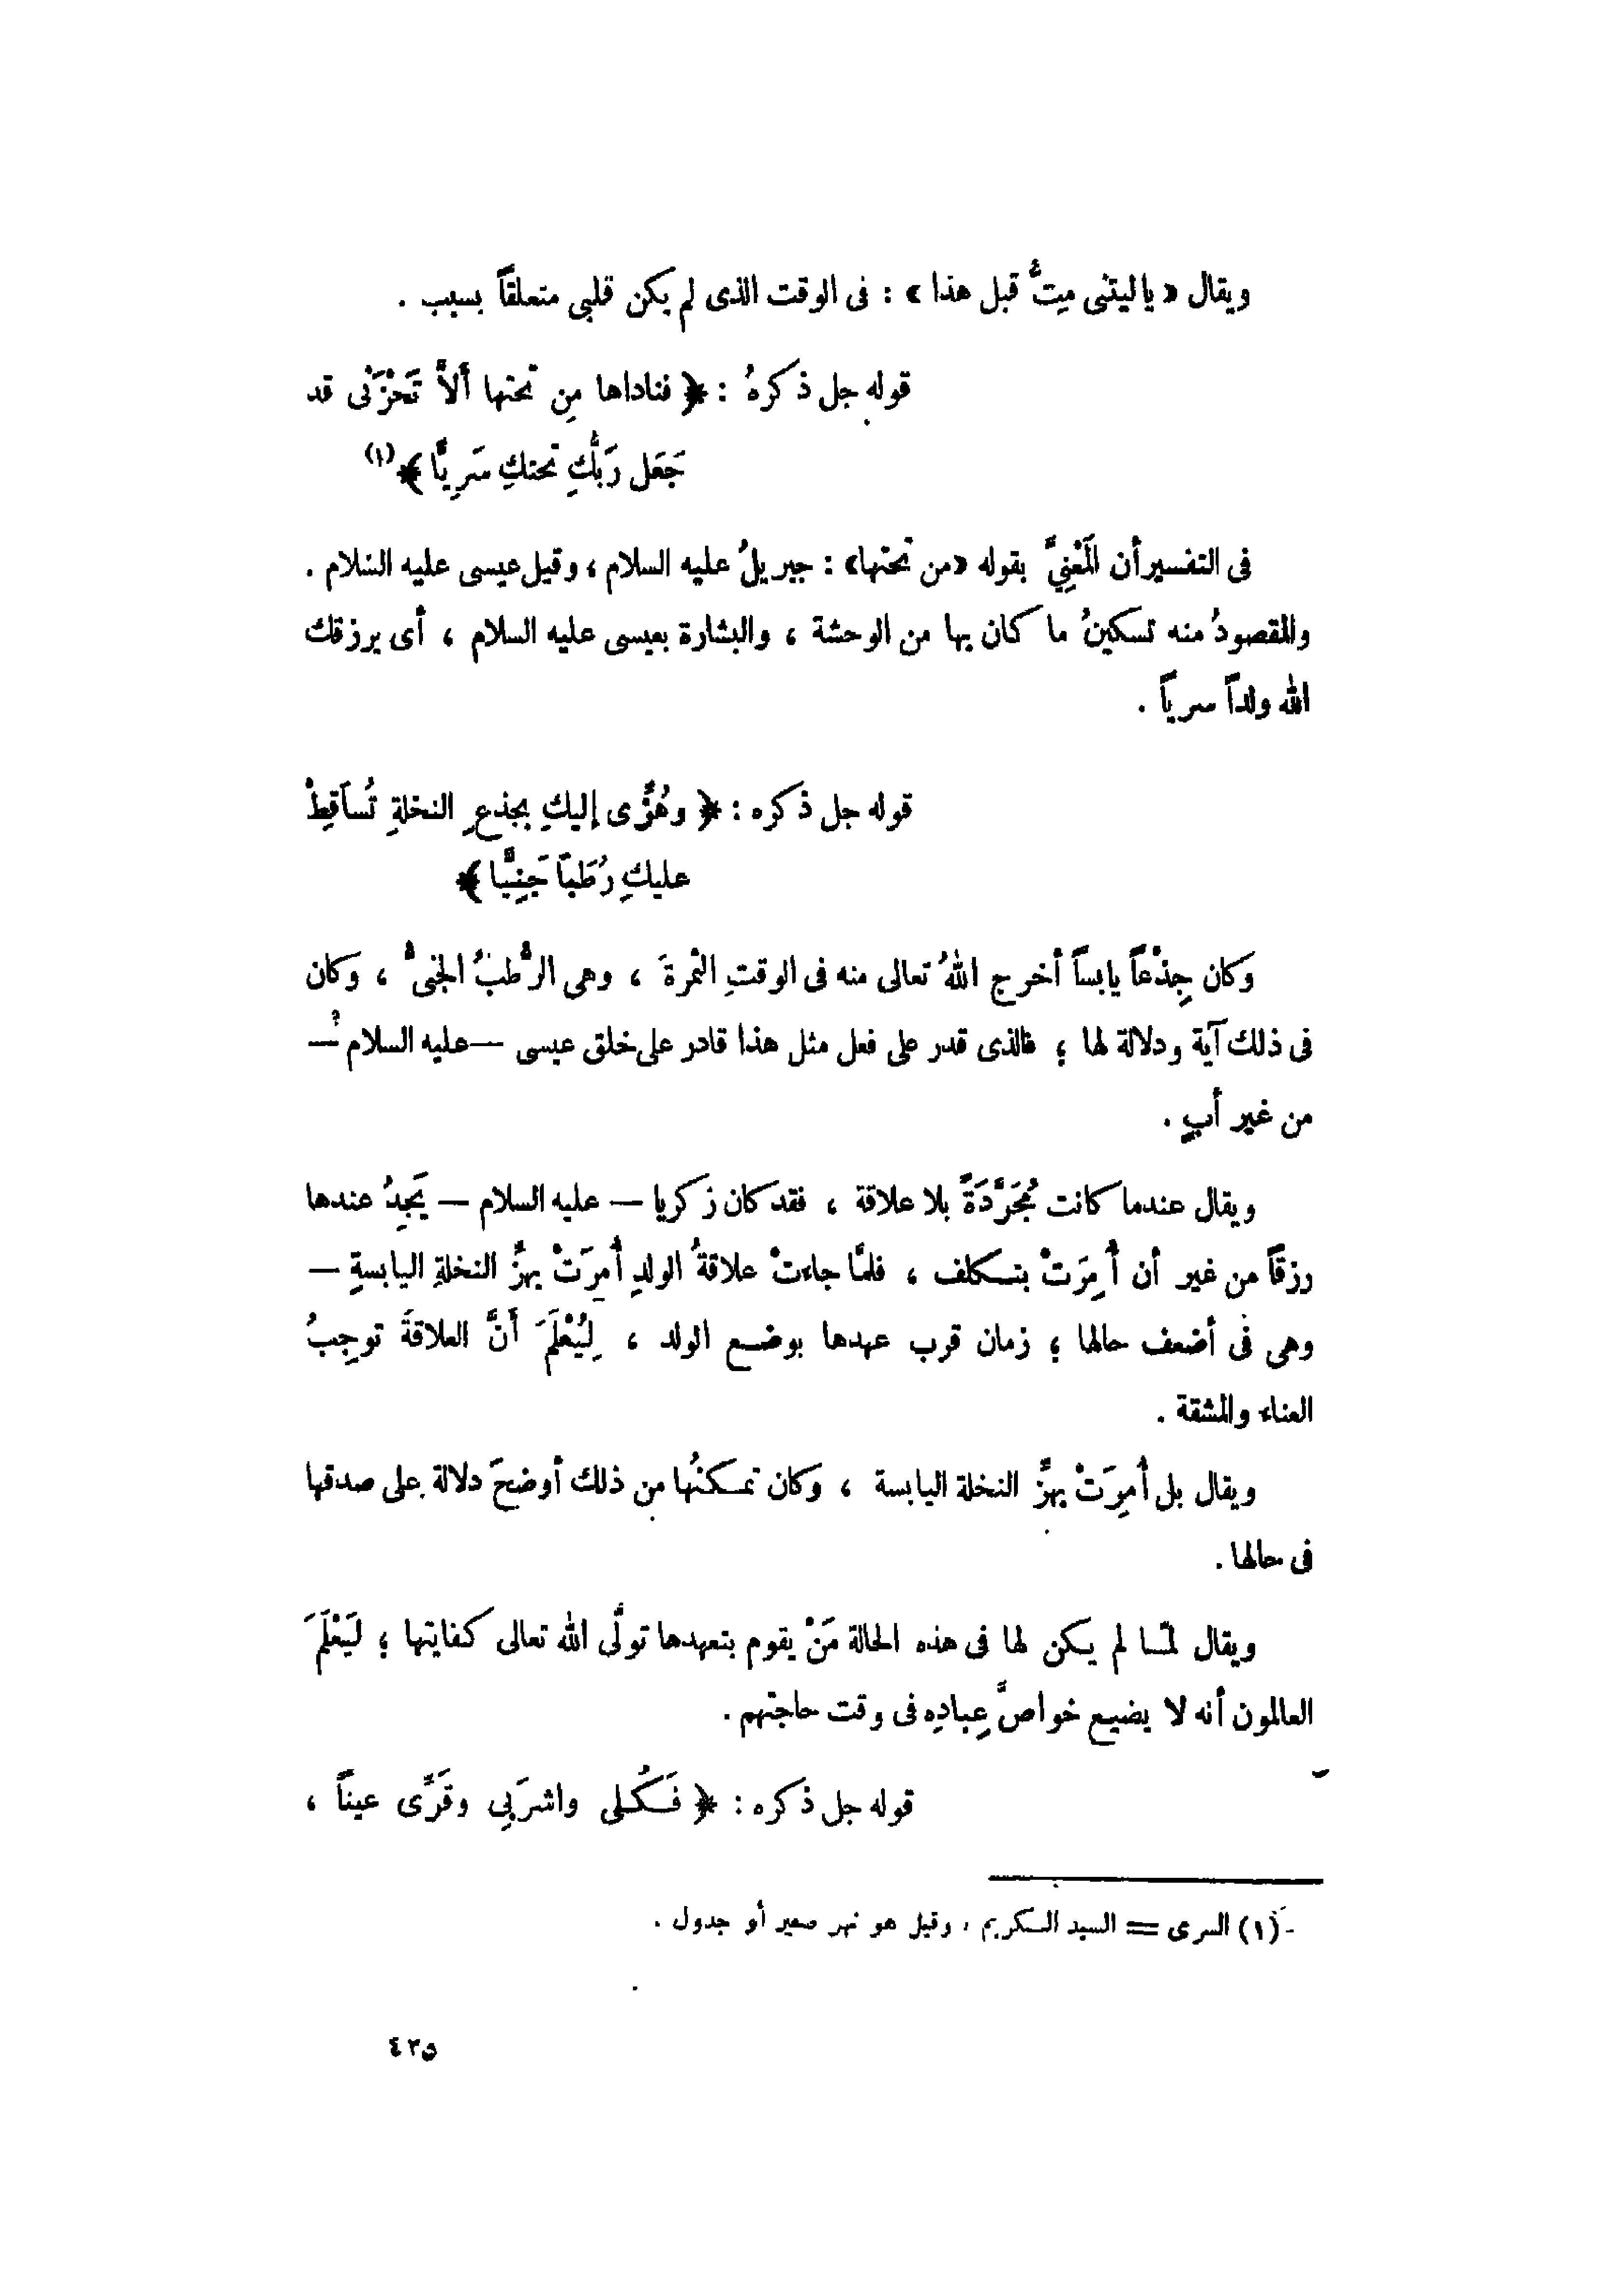 ويقال « ياليتنى مِتُّ قبل هذا » : فى الوقت الذى لم يكن قلبى متعلقاً بسبب .
قوله جل ذكرهُ : ﴿ فناداها مِن تحتها ألاَّ تَحْزَنْى قد
جَعَل رَبُّكِ تحتكِ سَرِيًّا ﴾(١)
فى التفسير أن المَعْنِيَّ بقوله «من تحتها» : جبريلُ عليه السلام ، وقيل عيسى عليه السلام .
والمقصودُ منه تسكينُ ما كان بها من الوحشة ، والبشارة بعيسى عليه السلام ، أى يرزقك
الله ولداً سرياً .
قوله جل ذكره : ﴿ وهُزِّى إليكِ بجذعِ النخلةِ تُساَقِطْ
عليكِ رُطَباً جَنِيًّا ﴾
وكان جِذْعاً يابساً أخرج اللهُ تعالى منه فى الوقتِ الثمرةَ ، وهى الرُّطَبُ الجنىُّ ، وكان
فى ذلك آية ودلالة لها ؛ فالذى قدر على فعل مثل هذا قادر على خلق عيسى — عليه السلام —
من غير أبٍ .
ويقال عندما كانت مُجَرَّدَةً بلا علاقة ، فقد كان زكريا — عليه السلام — يَجِدُ عندها
رزقاً من غير أن أُمِرَتْ بتكلف ، فلمَّا جاءت علاقةُ الولدِ أُمِرَتْ بهزِّ النخلةِ اليابسةِ —
وهى فى أضعف حالها ؛ زمان قرب عهدها بوضع الولد ، لِيُعْلَمَ أنَّ العلاقةَ توجِبُ
العناء والمشقة .
ويقال بل أُمِرَتْ بهزِّ النخلة اليابسة ، وكان تمكنُها من ذلك أوضحَ دلالة على صدقها
فى حالها .
ويقال لمَّا لم يكن لها فى هذه الحالة مَنْ يقوم بتعهدها تولَّى الله تعالى كفايتها ؛ لَيَعْلَمَ
العالمون أنه لا يضيع خواصَّ عِبادِه فى وقت حاجتهم .
قوله جل ذكره : ﴿ فَكُلى واشرَبِى وقَرِّى عيناً ،
(١) السرى = السيد الكريم ، وقيل هو نهر صغير أو جدول .
٤٢٥